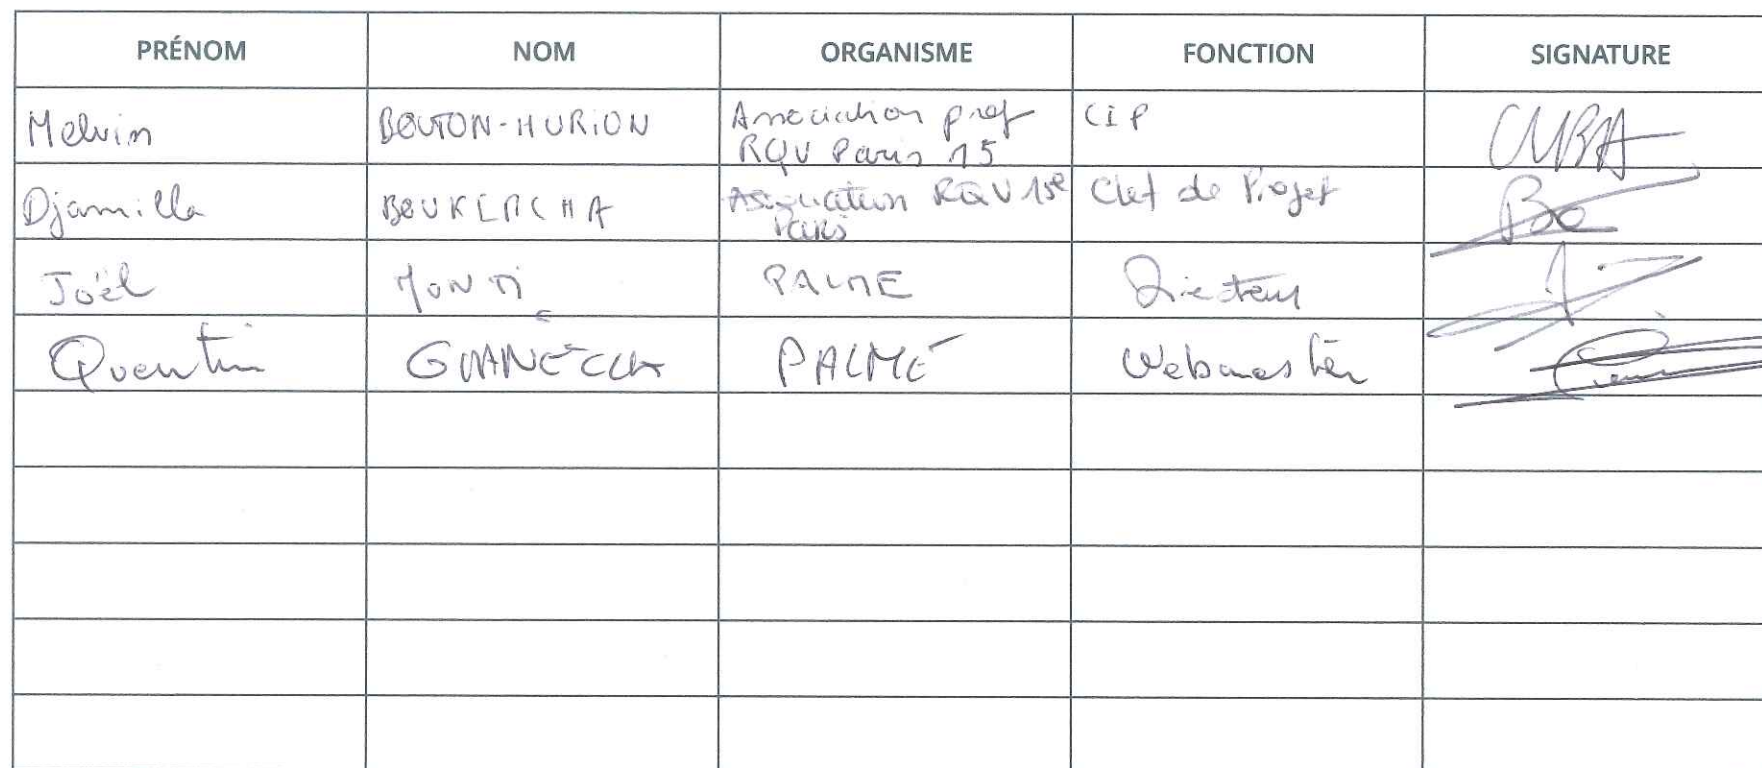 PRÉNOM NOM ORGANISME FONCTION SIGNATURE
Melvin BOUTON-HURION Association pref CIP
RQV Paris 15
Djamilla BOUKERCHA Association RQV 15e Chef de Projet
Paris
Joël MONTI PALME Directeur
Quentin PALMÉ Webmaster